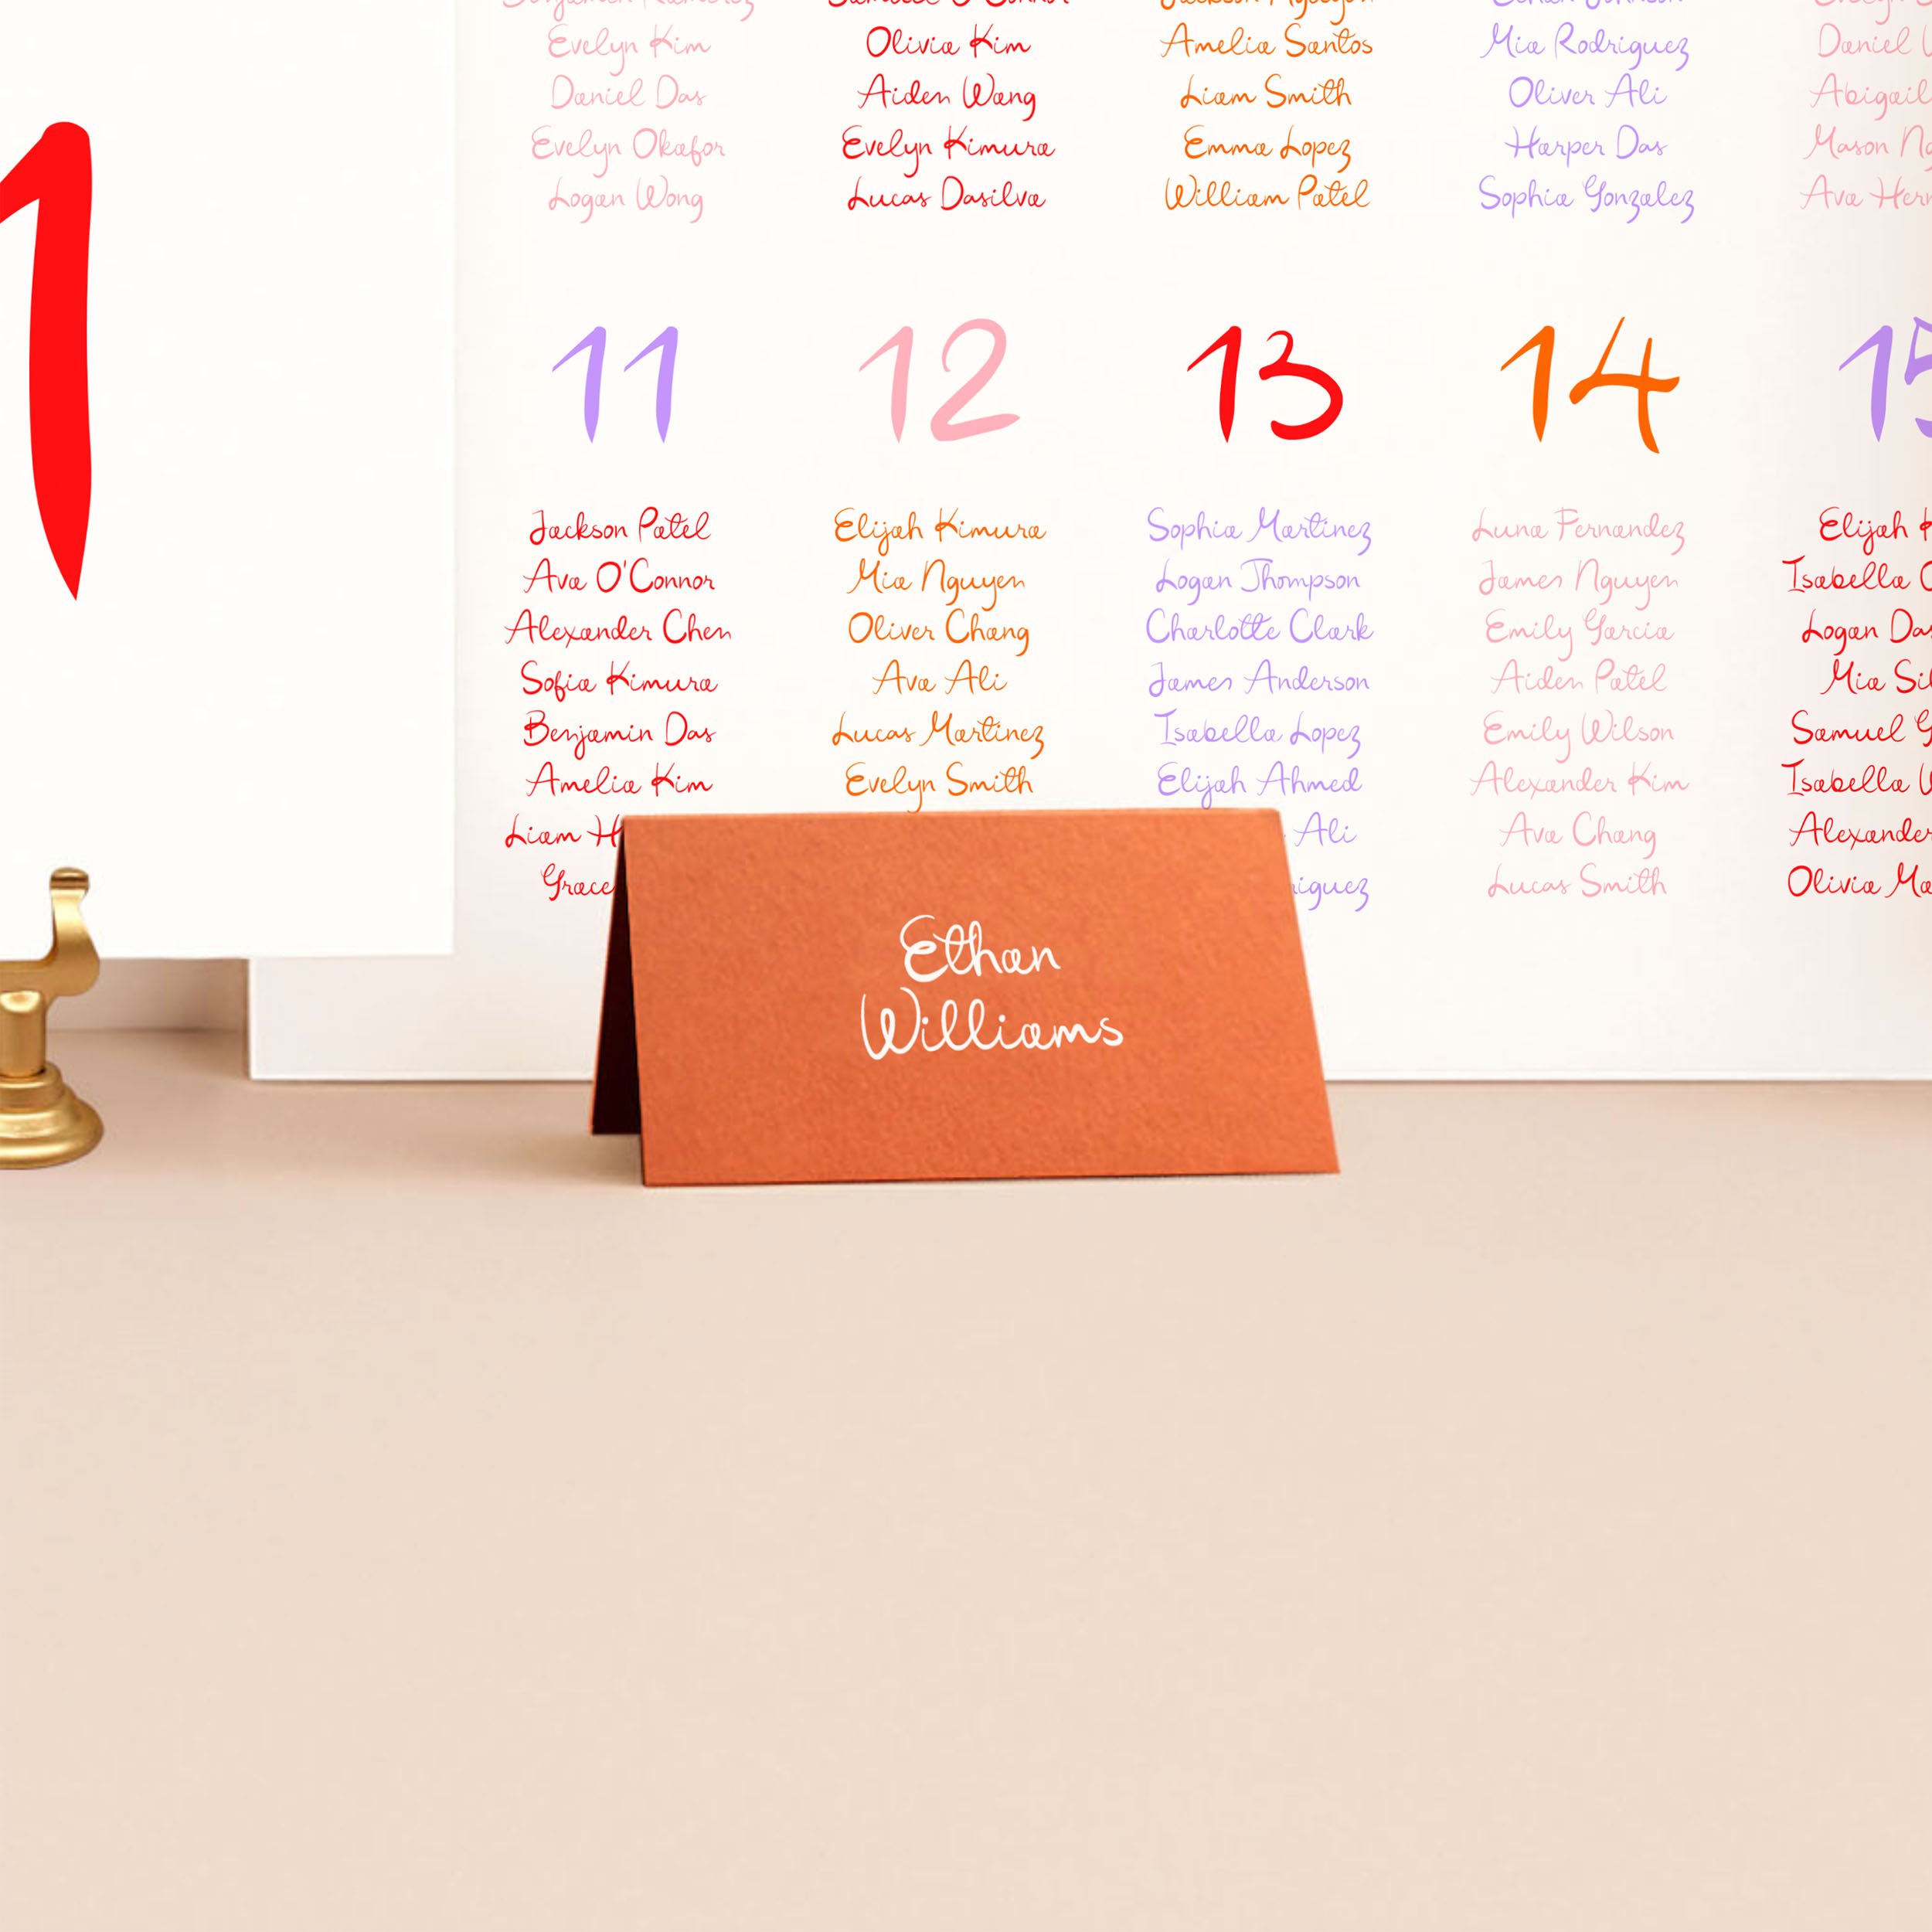 1
Evelyn Kim
Daniel Das
Evelyn Okafor
Logan Wong
Olivia Kim
Aiden Wang
Evelyn Kimura
Lucas Dasilva
Amelia Santos
Liam Smith
Emma Lopez
William Patel
Mia Rodriguez
Oliver Ali
Harper Das
Sophia Gonzalez
Daniel
Abigail
Mason
Ava
11
Jackson Patel
Ava O'Connor
Alexander Chen
Sofia Kimura
Benjamin Das
Amelia Kim
Liam
Grace
12
Elijah Kimura
Mia Nguyen
Oliver Chang
Ava Ali
Lucas Martinez
Evelyn Smith
13
Sophia Martinez
Logan Thompson
Charlotte Clark
James Anderson
Isabella Lopez
Elijah Ahmed
Ali
14
Luna Fernandez
James Nguyen
Emily Garcia
Aiden Patel
Emily Wilson
Alexander Kim
Ava Chang
Lucas Smith
15
Elijah
Isabella
Logan
Mia
Samuel
Isabella
Alexander
Olivia
Ethan
Williams